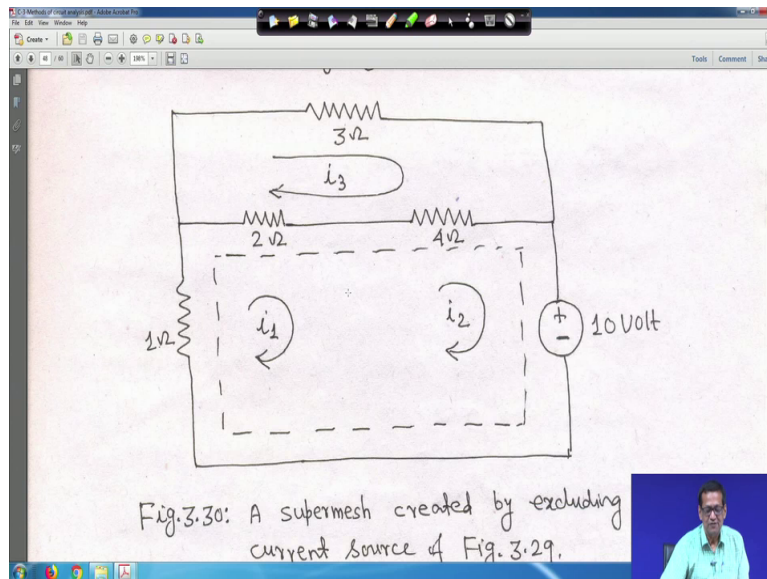 C-3-Methods of circuit analysis.pdf - Adobe Acrobat Pro
File Edit View Window Help
Create
48 / 60 198% Tools Comment
3Ω
i3
2Ω 4Ω
1Ω i1 i2 + − 10 Volt
Fig.3.30: A supermesh created by excluding
current source of Fig. 3.29.